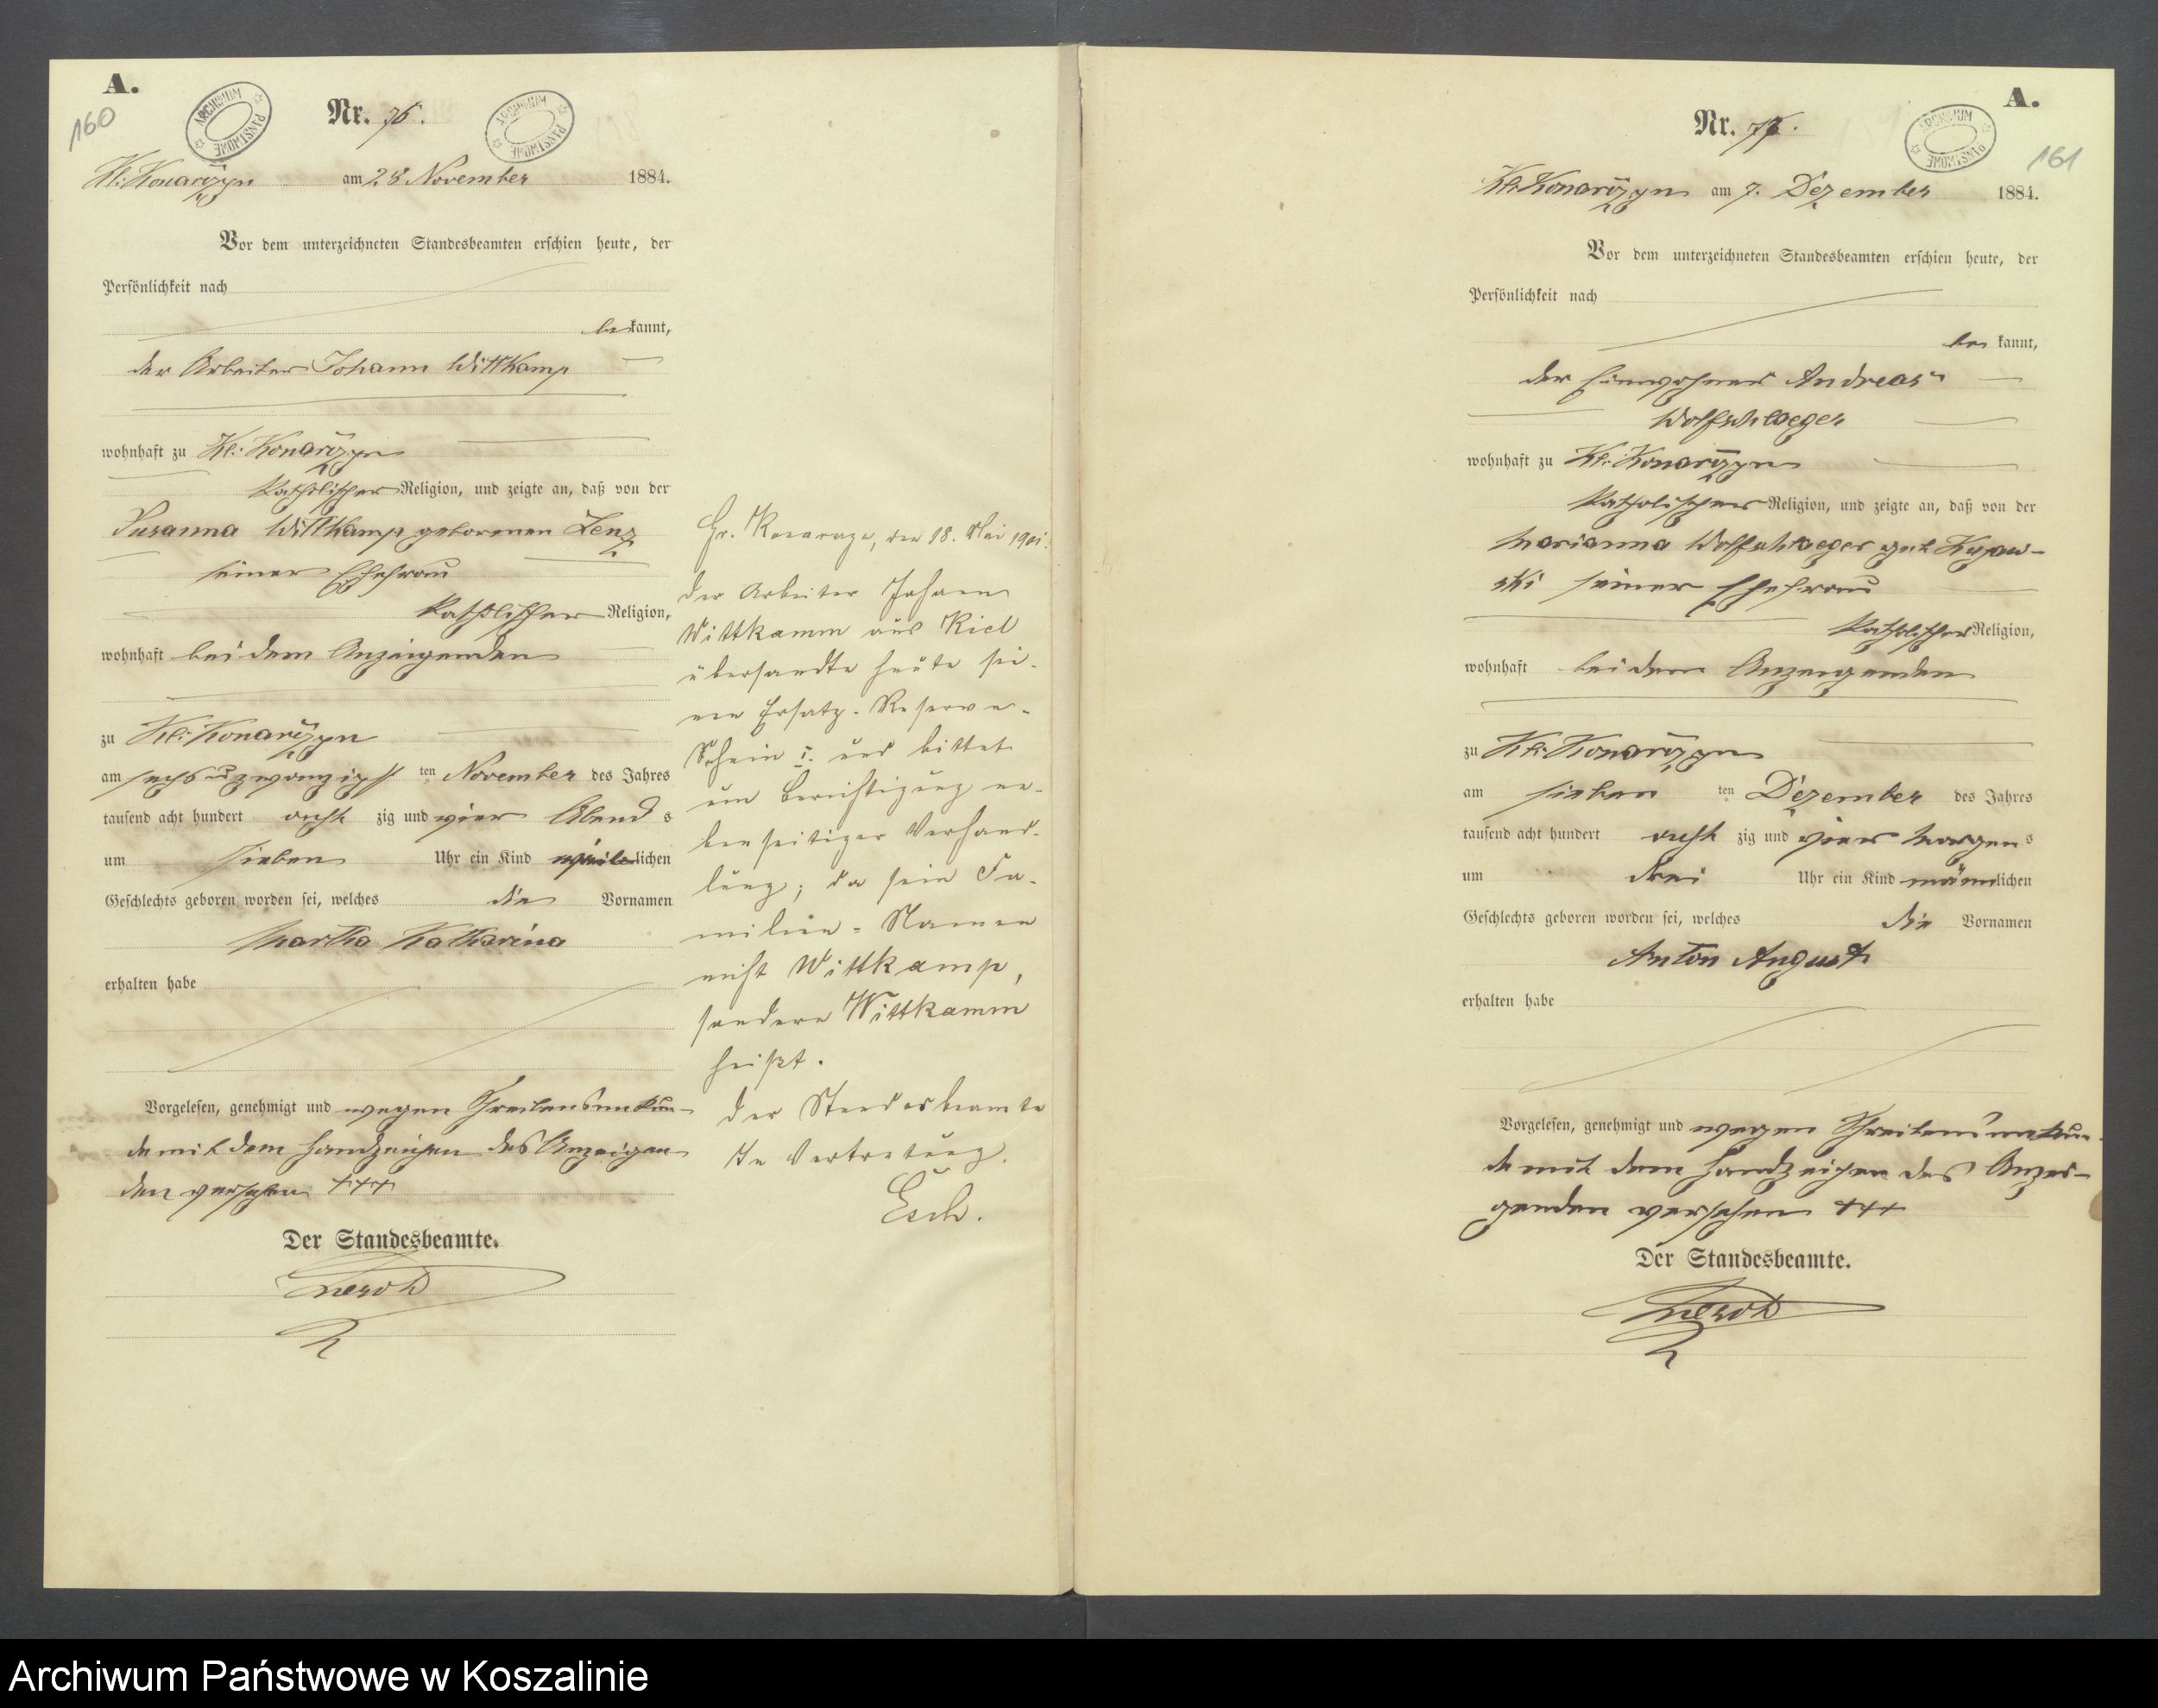 A.
160
ARCHIWUM PAŃSTWOWE
Nr. 76.
ARCHIWUM PAŃSTWOWE
Kl: Konarczyn am 28 November 1884.
Vor dem unterzeichneten Standesbeamten erschien heute, der
Persönlichkeit nach
bekannt,
der Arbeiter Johann Wittkamp
wohnhaft zu Kl: Konarczyn
katholischer Religion, und zeigte an, daß von der
Susanna Wittkamp geborenen Lenz
seiner Ehefrau
katholischer Religion,
wohnhaft bei dem Anzeigenden
zu Kl: Konarczyn
am sechsundzwanzigsten November des Jahres
tausend acht hundert achtzig und vier Abends
um sieben Uhr ein Kind weiblichen
Geschlechts geboren worden sei, welches die Vornamen
Martha Katharina
erhalten habe
Vorgelesen, genehmigt und wegen Schreibensunkun-
de mit dem Handzeichen des Anzeigen-
den versehen +++
Der Standesbeamte.
Gr. Konarczyn, den 18. Mai 1901.
Der Arbeiter Johann
Wittkamm aus Kiel
übersandte heute sei-
nen Ersatz-Reserve-
Schein I. und bittet
um Berichtigung ne-
benseitiger Verhand-
lung; da sein Fa-
milien-Namen
nicht Wittkamp,
sondern Wittkamm
heißt.
Der Standesbeamte
In Vertretung.
Esch.
A.
161
Nr. 77.
ARCHIWUM PAŃSTWOWE
Kl: Konarczyn am 7. Dezember 1884.
Vor dem unterzeichneten Standesbeamten erschien heute, der
Persönlichkeit nach
bekannt,
der Einwohner Andreas
Wolfschlaeger
wohnhaft zu Kl: Konarczyn
katholischer Religion, und zeigte an, daß von der
Marianna Wolfschlaeger geb Kujaw-
ski seiner Ehefrau
katholischer Religion,
wohnhaft bei dem Anzeigenden
zu Kl: Konarczyn
am siebenten Dezember des Jahres
tausend acht hundert achtzig und vier Morgens
um drei Uhr ein Kind männlichen
Geschlechts geboren worden sei, welches die Vornamen
Anton August
erhalten habe
Vorgelesen, genehmigt und wegen Schreibensunkun-
de mit dem Handzeichen des Anzei-
genden versehen +++
Der Standesbeamte.
Archiwum Państwowe w Koszalinie